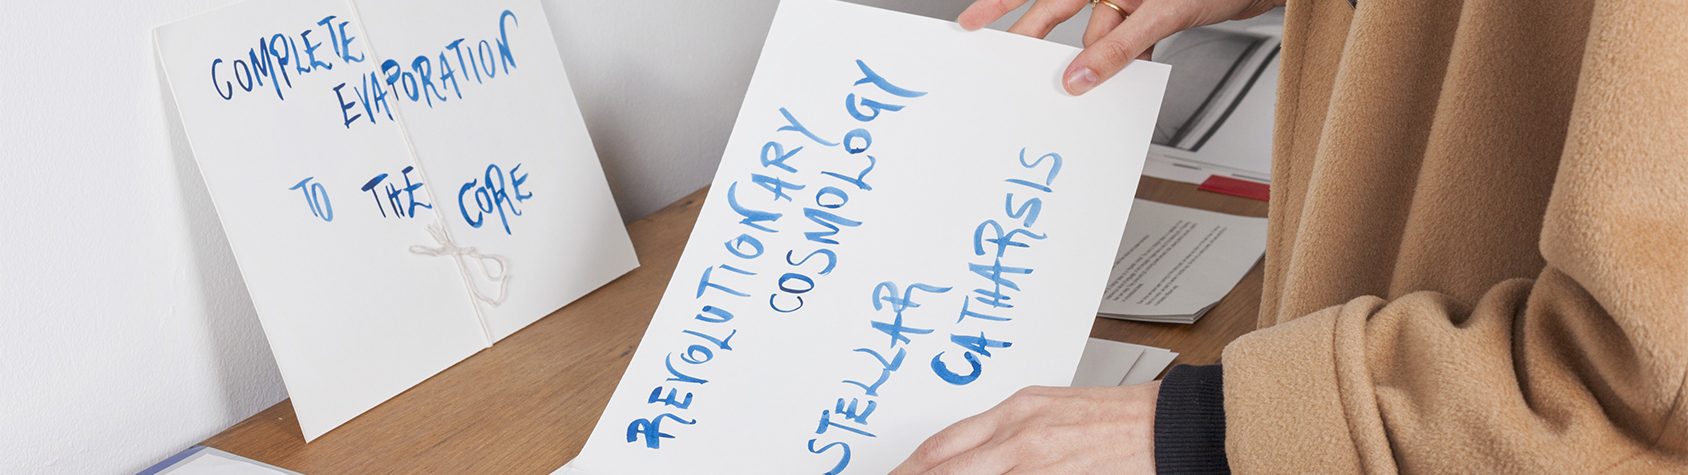 COMPLETE
EVAPORATION
TO THE CORE
REVOLUTIONARY
COSMOLOGY
STELLAR
CATHARSIS